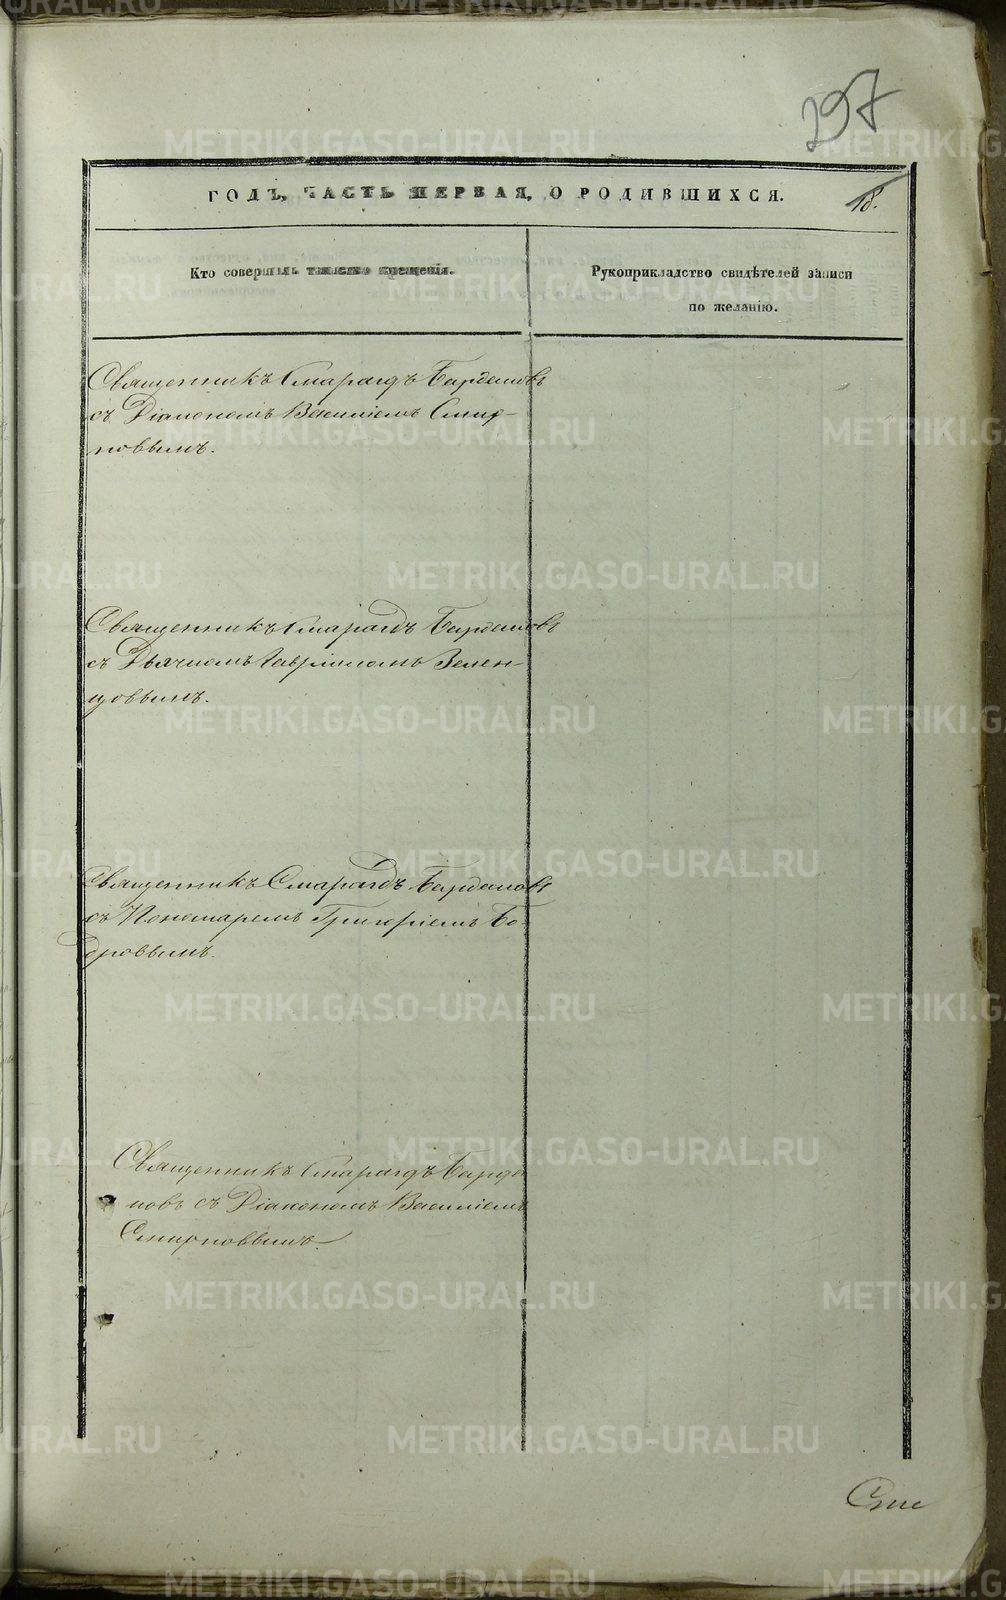 297
ГОДЪ, ЧАСТЬ ПЕРВАЯ, О РОДИВШИХСЯ.
18.
Кто совершалъ таинство крещенія.
Рукоприкладство свидѣтелей записи
по желанію.
Священникъ Смарагдъ Бардамовъ
съ Діакономъ Василіемъ Смир-
новымъ.
Священникъ Смарагдъ Бардамовъ
съ Дьячкомъ Гавріиломъ Зелен-
цовымъ.
Священникъ Смарагдъ Бардамовъ
съ Пономаремъ Григоріемъ Бо-
дровымъ.
Священникъ Смарагдъ Барда-
мовъ съ Діакономъ Василіемъ
Смирновымъ.
METRIKI.GASO-URAL.RU